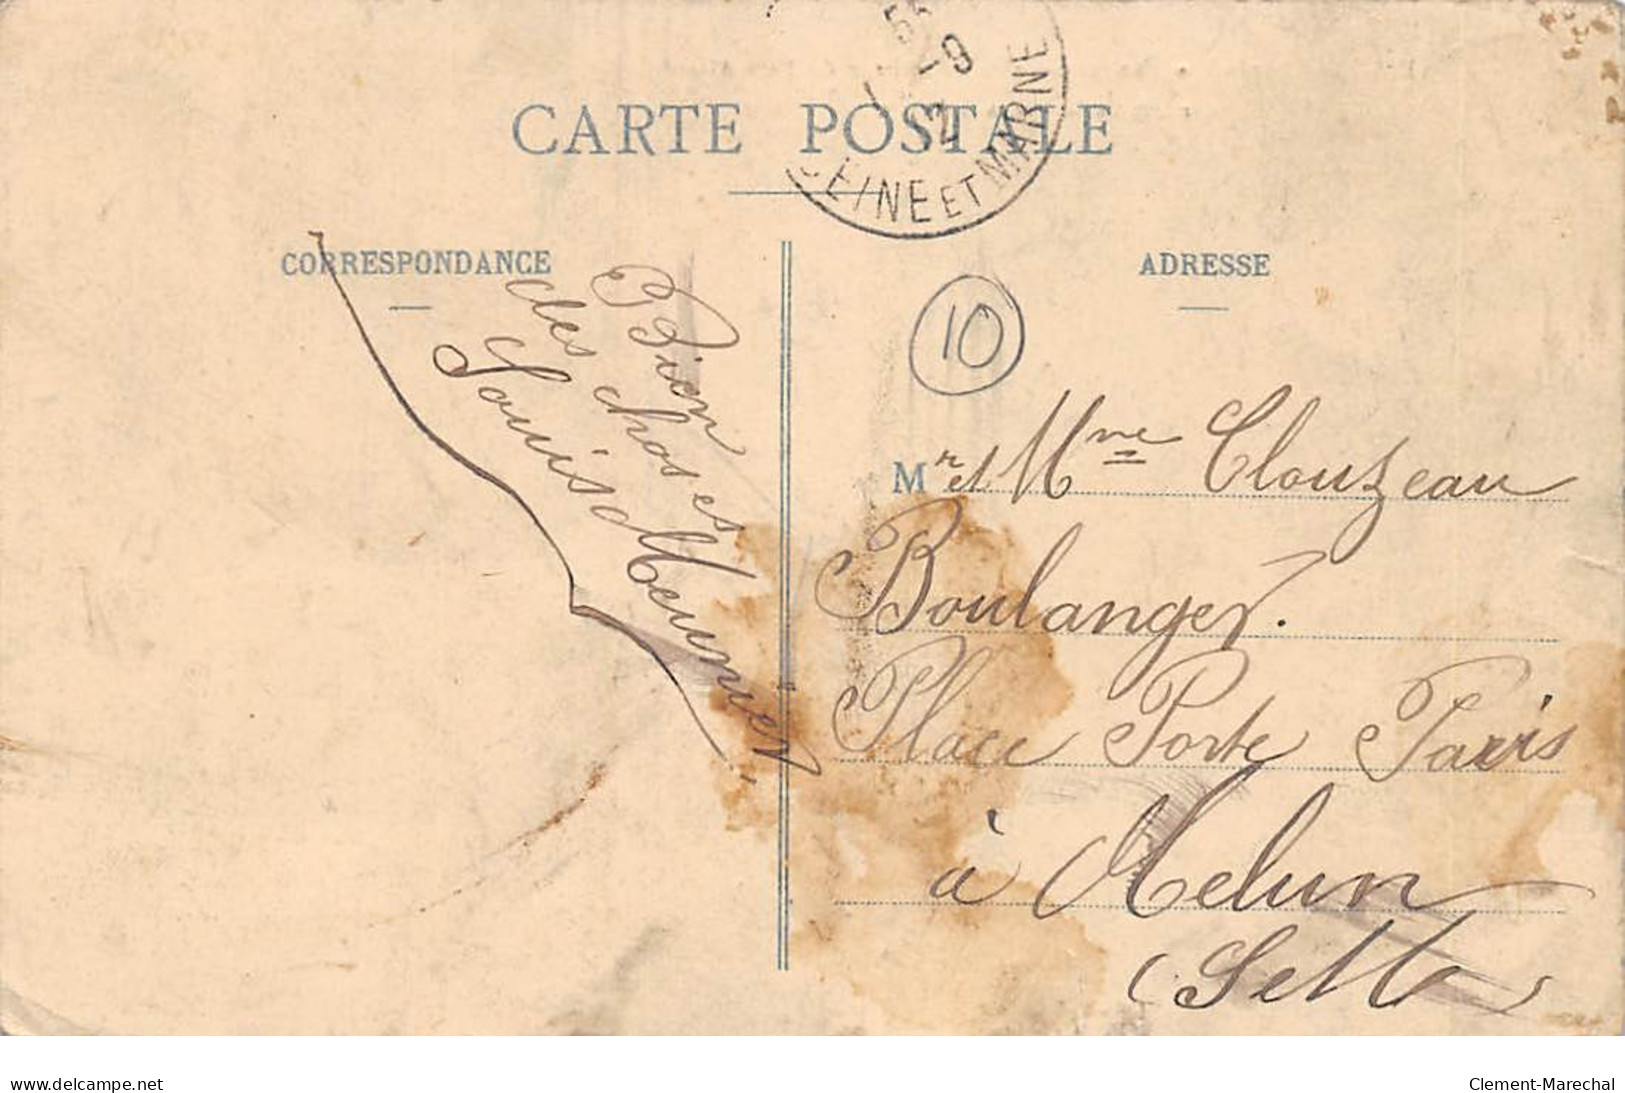 CARTE POSTALE
-9
SEINE ET MARNE
CORRESPONDANCE
ADRESSE
Bien
des choses
Louis Meunier
10
Mr et Mme Clouzeau
Boulanger.
Place Porte Paris
à Melun
(SetM)
www.delcampe.net
Clement-Marechal